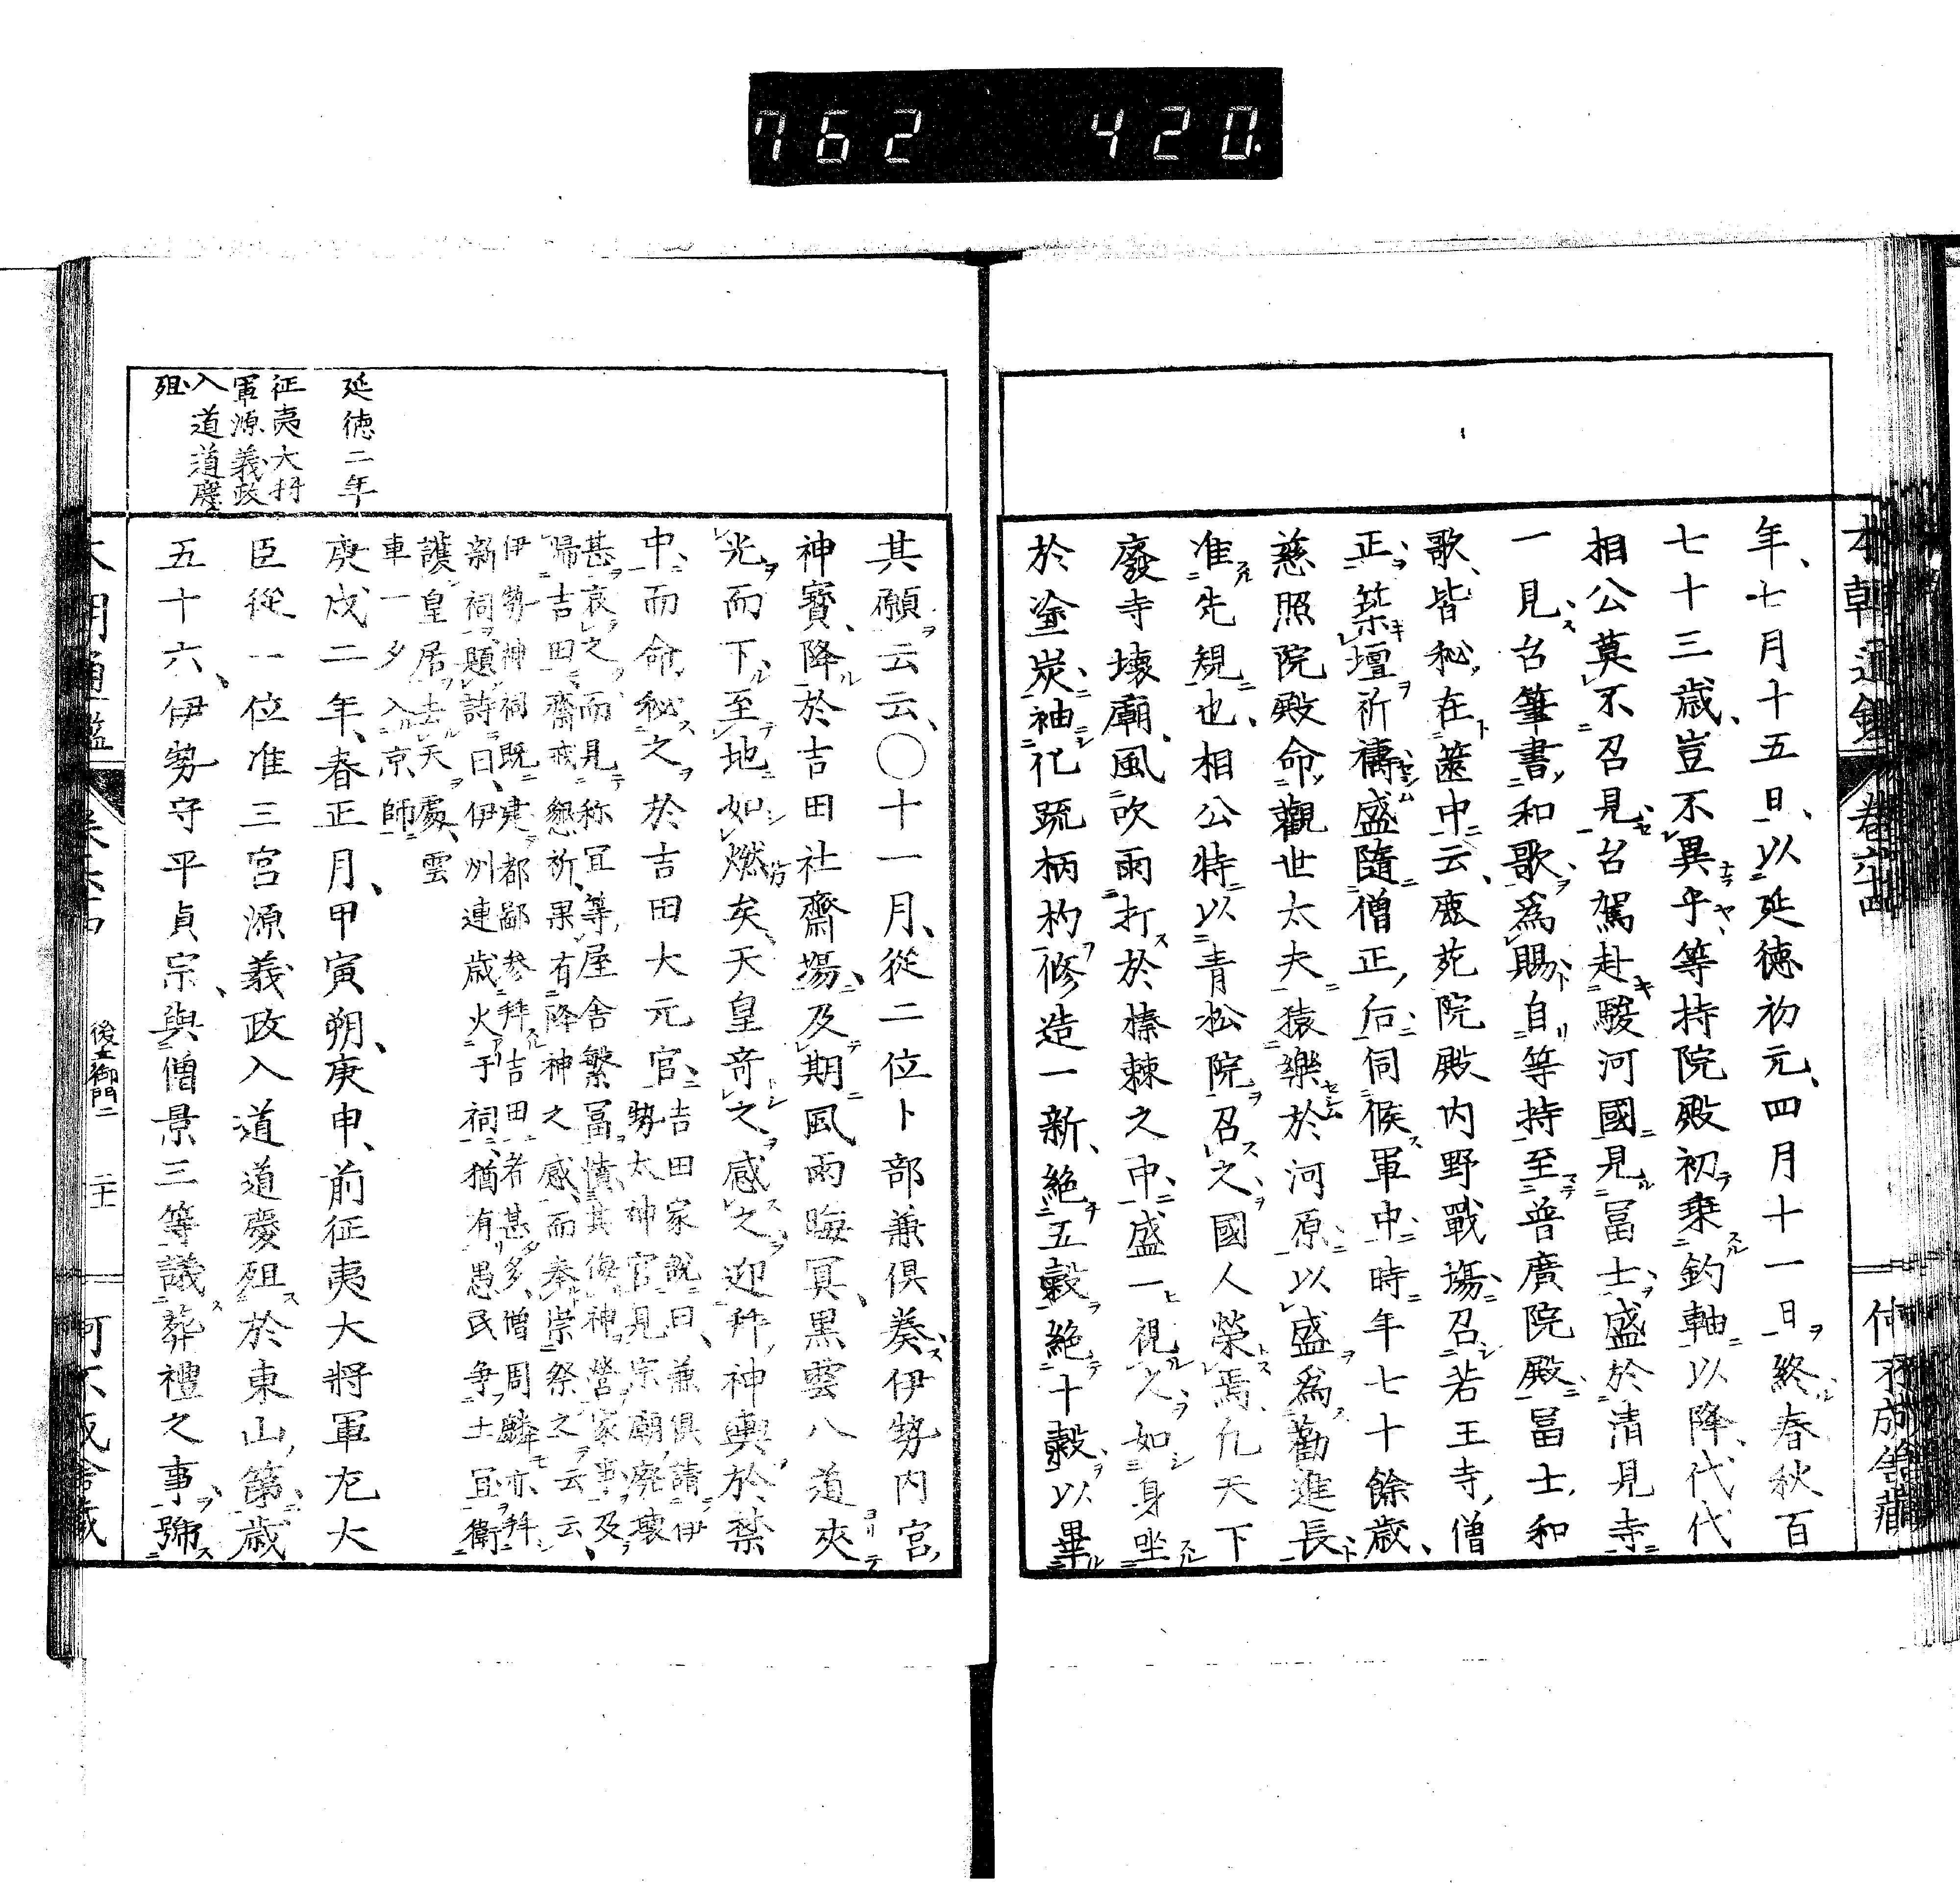 762 420.
年、七月十五日、以延徳初元、四月十一日終春秋百
七十三歳、豈不異乎等持院殿初秉釣軸以降、代代
相公莫不召見、台駕赴駿河國見冨士、盛於清見寺
一見、台筆書、和歌爲賜自等持至普廣院殿冨士、和
歌、皆秘在篋中云、鹿苑院殿内野戰場、召若王寺、僧
正、築壇祈禱盛隨僧正、后伺候軍中、時年七十餘歳、
慈照院殿命觀世太夫猿樂於河原、以盛爲勸進長、
准先規也、相公特以青松院召之、國人榮焉、凢天下
廢寺壊廟、風吹雨打於榛棘之中、盛一視之、如身坐
於塗炭、袖化䟽柄杓修造一新、絶五穀絶十穀、以畢
其願云云、〇十一月、從二位卜部兼倶奏、伊勢内宮、
神寳、降於吉田社齋場、及期風雨晦冥、黒雲八道夾
光而下、至地如燃矣、天皇奇之、感之、迎拜、神輿於禁
中、而命秘之、於吉田大元宮、
吉田家説曰、兼倶請伊
勢太神宮見宗廟廢壊
甚哀之、而見称冝等、屋舍繁冨、憤其侮神、營家事、及
歸吉田、齋戒懇祈、果有降神之感、而奉崇祭之云云、
伊勢神祠既建都鄙參拜吉田者甚多、僧周麟亦拜
新祠、題詩曰、伊州連歳火于祠、猶有愚民争土冝、衛
護皇居去天處、雲
車一夕入京師
庚戌二年、春正月、甲寅朔、庚申、前征夷大將軍左大
臣從一位准三宮源義政入道道慶殂於東山、第、歳
五十六、伊勢守平貞宗、與僧景三等議葬禮之事、號
延徳二年
征夷大将
軍源義政
入道道慶
殂
後土御門二